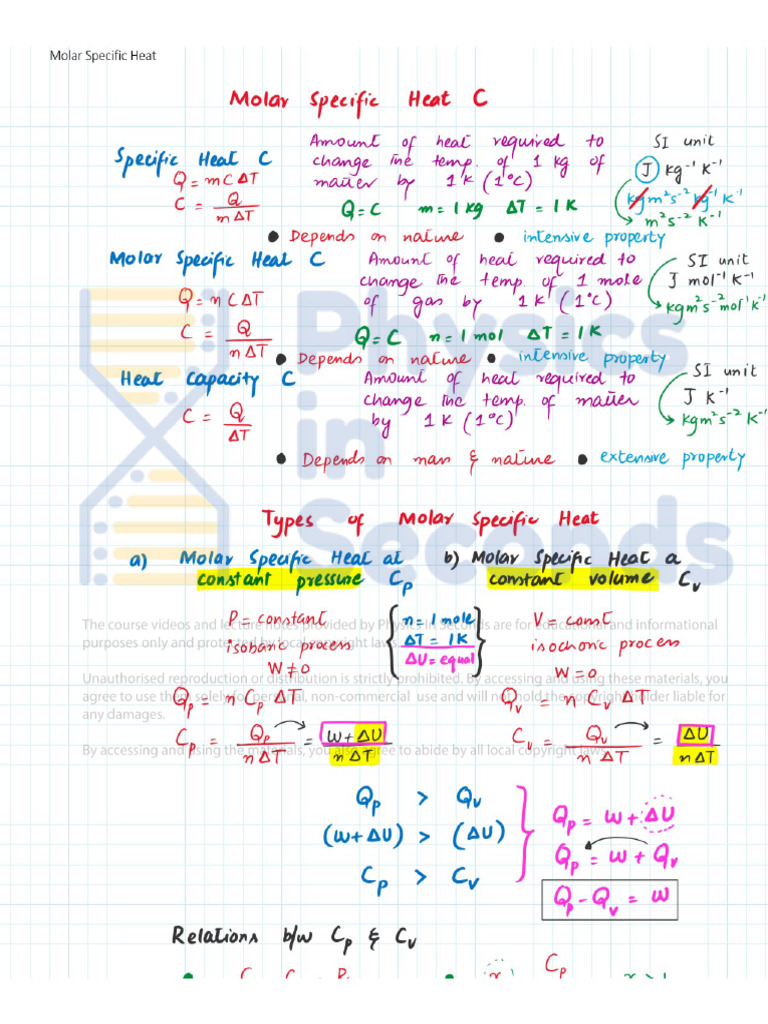 Molar Specific Heat
Molar Specific Heat C
Specific Heat C
Q = mCΔT
C = Q / mΔT
Amount of heat required to
change the temp. of 1 kg of
matter by 1K (1°C)
Q = C m = 1 kg ΔT = 1K
SI unit
J kg⁻¹ K⁻¹
kgm²s⁻² kg⁻¹ K⁻¹
m²s⁻² K⁻¹
● Depends on nature ● intensive property
Molar Specific Heat C
Q = nCΔT
C = Q / nΔT
Amount of heat required to
change the temp. of 1 mole
of gas by 1K (1°C)
Q = C n = 1 mol ΔT = 1K
SI unit
J mol⁻¹ K⁻¹
kgm²s⁻² mol⁻¹ K⁻¹
● Depends on nature ● intensive property
Heat Capacity C
C = Q / ΔT
Amount of heat required to
change the temp. of matter
by 1K (1°C)
SI unit
J K⁻¹
kgm²s⁻² K⁻¹
● Depends on mass & nature ● extensive property
Physics
in
Seconds
Types of Molar Specific Heat
a) Molar Specific Heat at
constant pressure Cp
b) Molar Specific Heat a
constant volume Cv
The course videos and lecture notes provided by Physics in Seconds are for educational and informational
purposes only and protected by local copyright laws.
Unauthorised reproduction or distribution is strictly prohibited. By accessing and using these materials, you
agree to use them solely for personal, non-commercial use and will not hold the copyright holder liable for
any damages.
By accessing and using the materials, you also agree to abide by all local copyright laws.
P = constant
isobaric process
W ≠ 0
n = 1 mole
ΔT = 1K
ΔU = equal
V = const
isochoric process
W = 0
Qp = n Cp ΔT
Cp = Qp / nΔT = W + ΔU / nΔT
Qv = n Cv ΔT
Cv = Qv / nΔT = ΔU / nΔT
Qp > Qv
(W + ΔU) > (ΔU)
Cp > Cv
Qp = W + ΔU
Qp = W + Qv
Qp - Qv = W
Relations b/w Cp & Cv
Cp